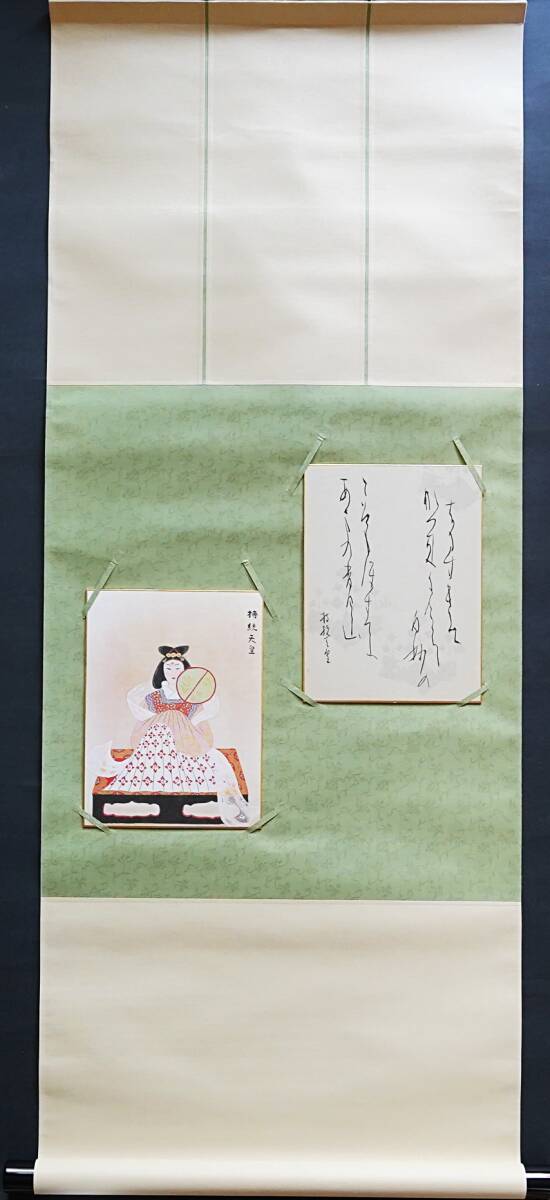 はるすきて
なつ来にけらし
白妙の
ころもほすてふ
あまの香具山
持統天皇
持統天皇